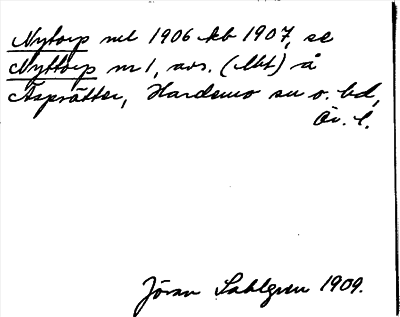 Nytorp nel 1906 kb 1907, se
Nyttorp nr 1, avs. (Lht) å
Asprätter, Hardemo sn o. hd,
Ör. l.
Jöran Sahlgren 1909.